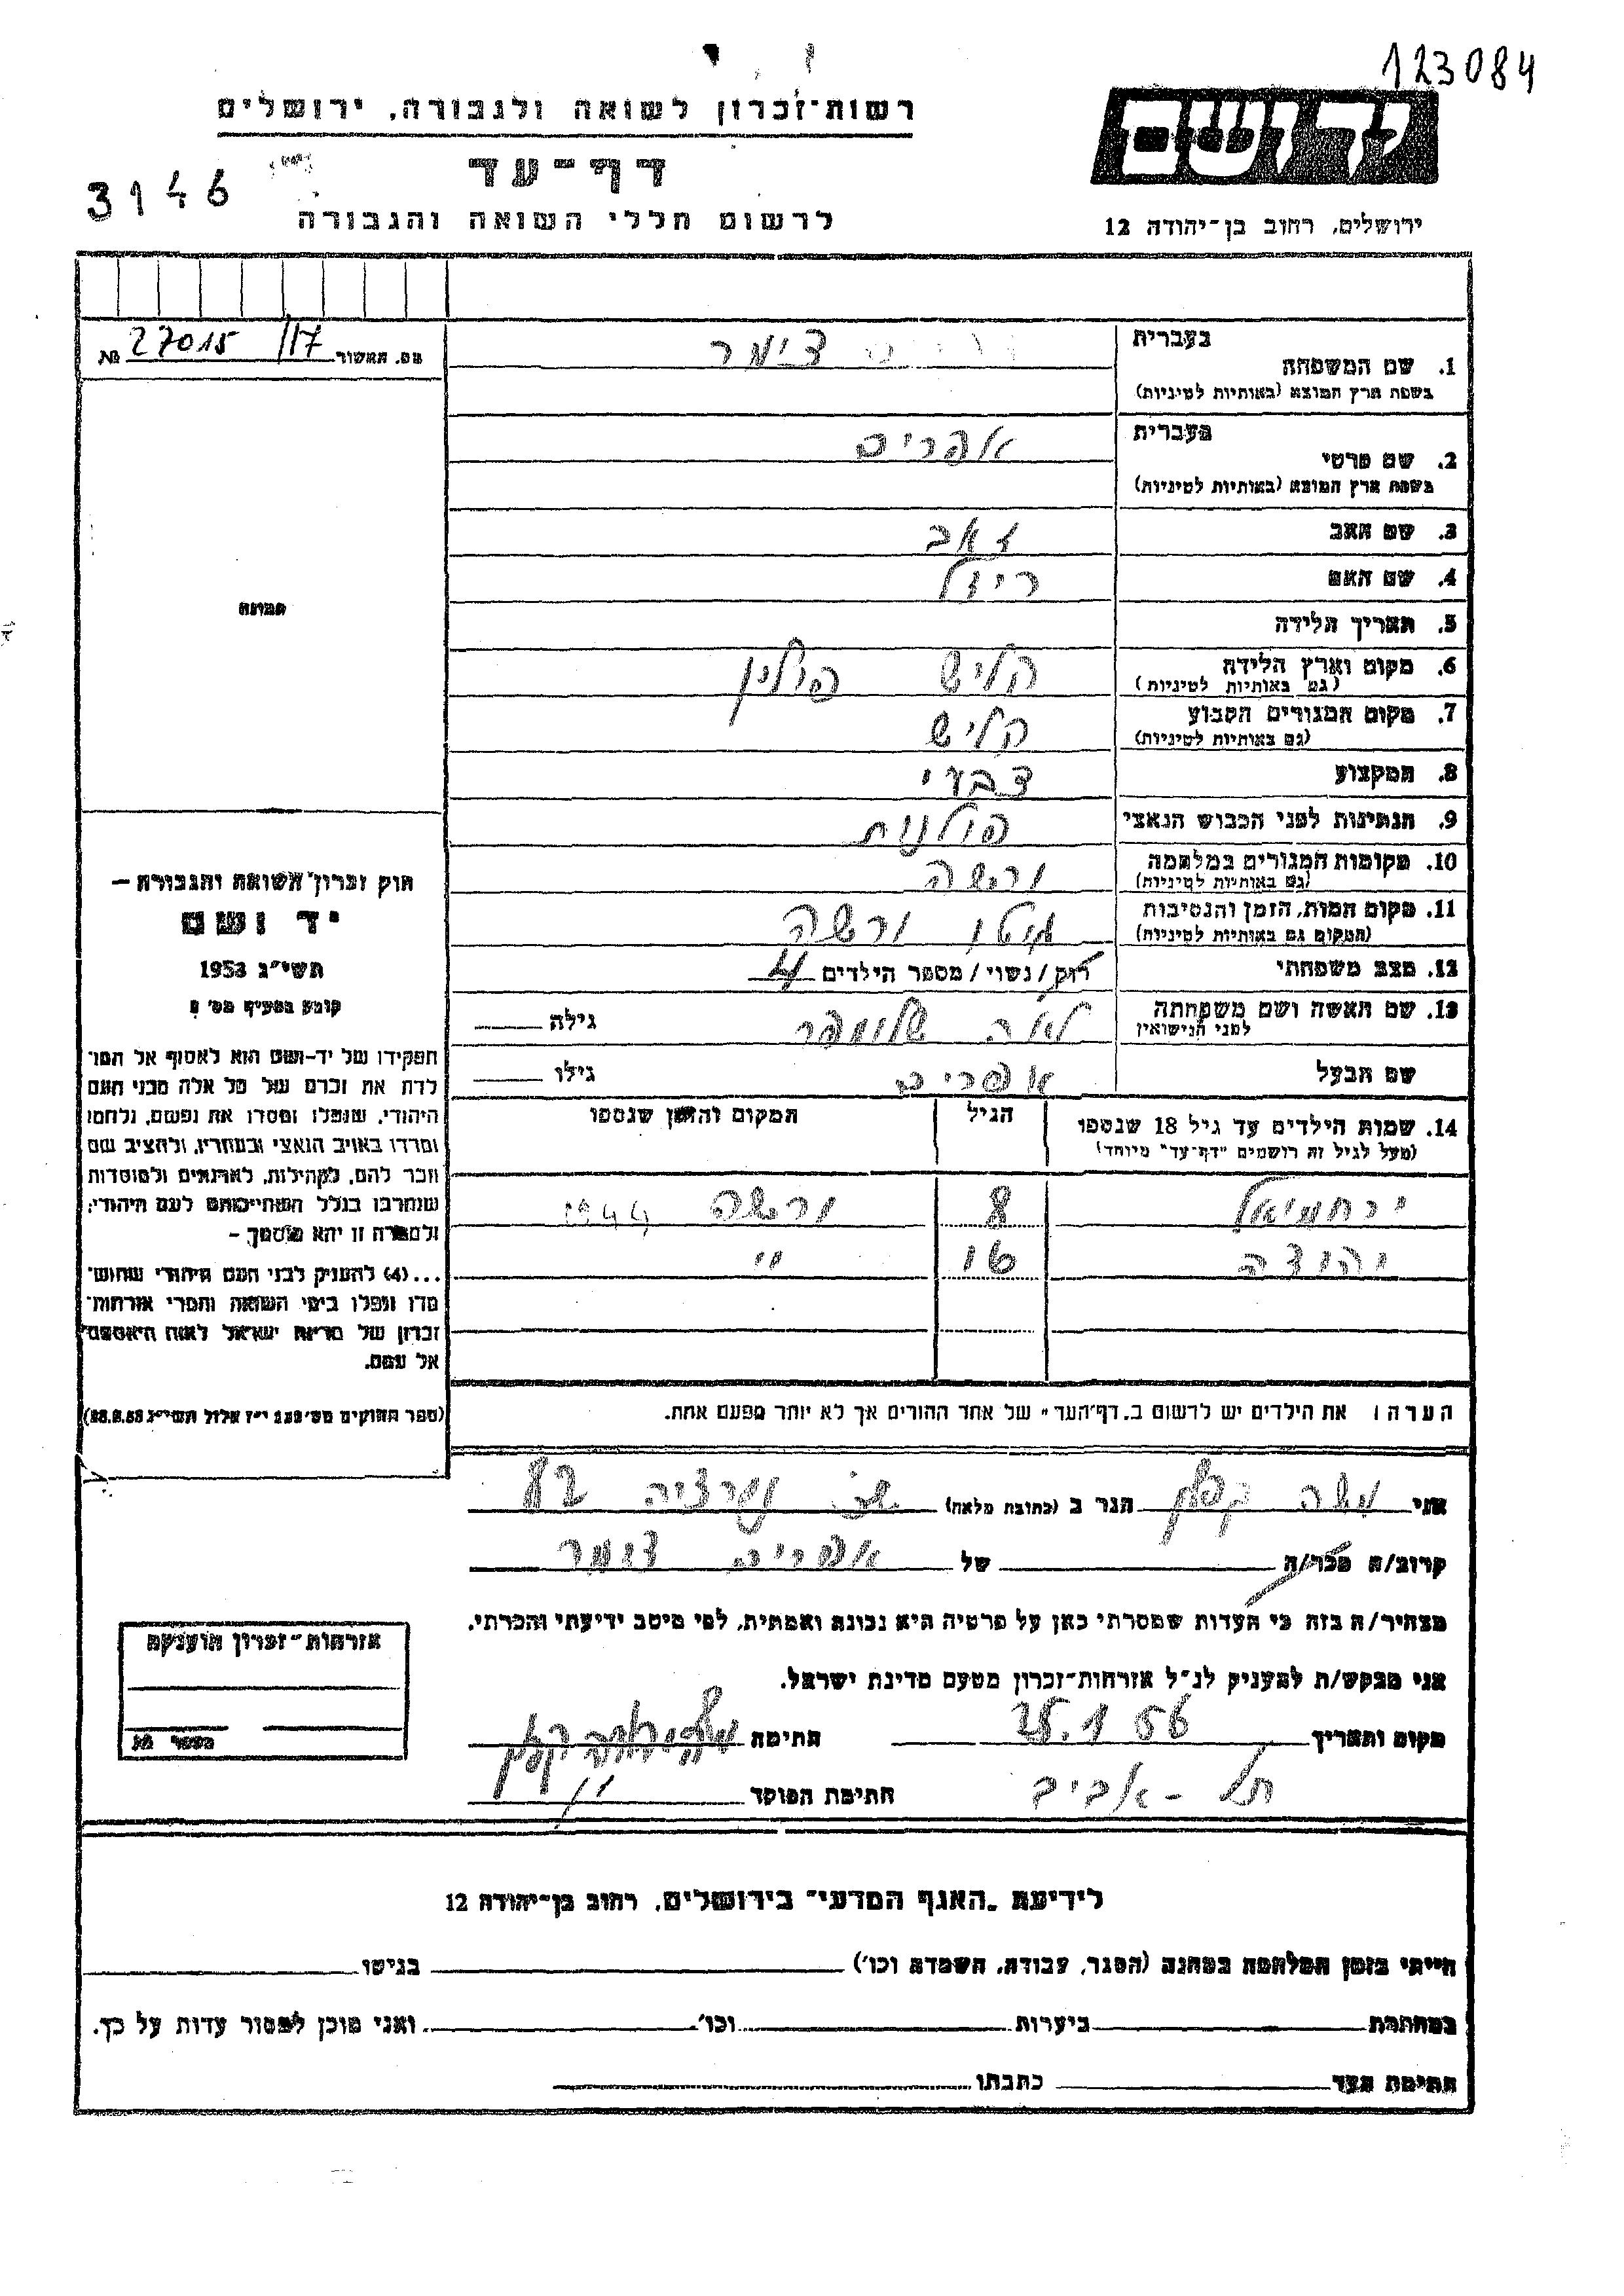 123084
יד ושם
רשות־זכרון לשואה ולגבורה, ירושלים
דף־עד
3146
לרשום חללי השואה והגבורה
ירושלים, רחוב בן־יהודה 12
מס. האשור 27015/17 №
בעברית
1. שם המשפחה צימר
בשפת ארץ המוצא (באותיות לטיניות)
בעברית
2. שם פרטי אפרים
בשפת ארץ המוצא (באותיות לטיניות)
3. שם האב זאב
4. שם האם ריזל
5. תאריך הלידה
6. מקום וארץ הלידה קליש פולין
(גם באותיות לטיניות)
7. מקום המגורים הקבוע קליש
(גם באותיות לטיניות)
8. המקצוע צבעי
9. הנתינות לפני הכבוש הנאצי פולנית
10. מקומות המגורים במלחמה ורשה
(גם באותיות לטיניות)
11. מקום המות, הזמן והנסיבות גיטו ורשה
(המקום גם באותיות לטיניות)
12. מצב משפחתי רוק/נשוי/מספר הילדים 4
13. שם האשה ושם משפחתה לאה גילה
לפני הנישואין
שם הבעל אפרים גילו
14. שמות הילדים עד גיל 18 שנספו הגיל המקום והזמן שנספו
(מעל לגיל זה רושמים "דף־עד" מיוחד)
ירחמיאל 8 ורשה 1944
יהודה 10 "
הערה: את הילדים יש לרשום ב"דף־העד" של אחד ההורים אך לא יותר מפעם אחת.
תמונה
חוק זכרון השואה והגבורה —
יד ושם
תשי"ג 1953
קובע בסעיף מס' 2
תפקידו של יד־ושם הוא לאסוף אל המו־
לדת את זכרם של כל אלה מבני העם
היהודי, שנפלו ומסרו את נפשם, נלחמו
ומרדו באויב הנאצי ובעוזריו, ולהציב שם
וזכר להם, לקהילות, לארגונים ולמוסדות
שנחרבו בגלל השתייכותם לעם היהודי;
ולמטרה זו יהא מוסמך —
...(4) להעניק לבני העם היהודי שהוש־
מדו ונפלו בימי השואה והמרי אזרחות־
זכרון של מדינת ישראל לאות היאספם
אל עמם.
(ספר החוקים מס' 132 י"ז אלול תשי"ג 28.8.53)
אני משה קפלן הגר ב (כתובת מלאה) 82
קרוב/ה מכר/ה של אפרים צימר
מצהיר/ה בזה כי העדות שמסרתי כאן על פרטיה היא נכונה ואמתית, לפי מיטב ידיעתי והכרתי.
אני מבקש/ת להעניק לנ"ל אזרחות־זכרון מטעם מדינת ישראל.
מקום ותאריך 25.1.56 חתימה
תל־אביב חתימת הפוקד
אזרחות־זכרון הוענקה
מספר №
לידיעת "האגף המדעי" בירושלים, רחוב בן־יהודה 12
הייתי בזמן המלחמה במחנה (הסגר, עבודה, השמדה וכו') בגיטו
במחתרת ביערות וכו' ואני מוכן למסור עדות על כך.
חתימת העד כתבתו